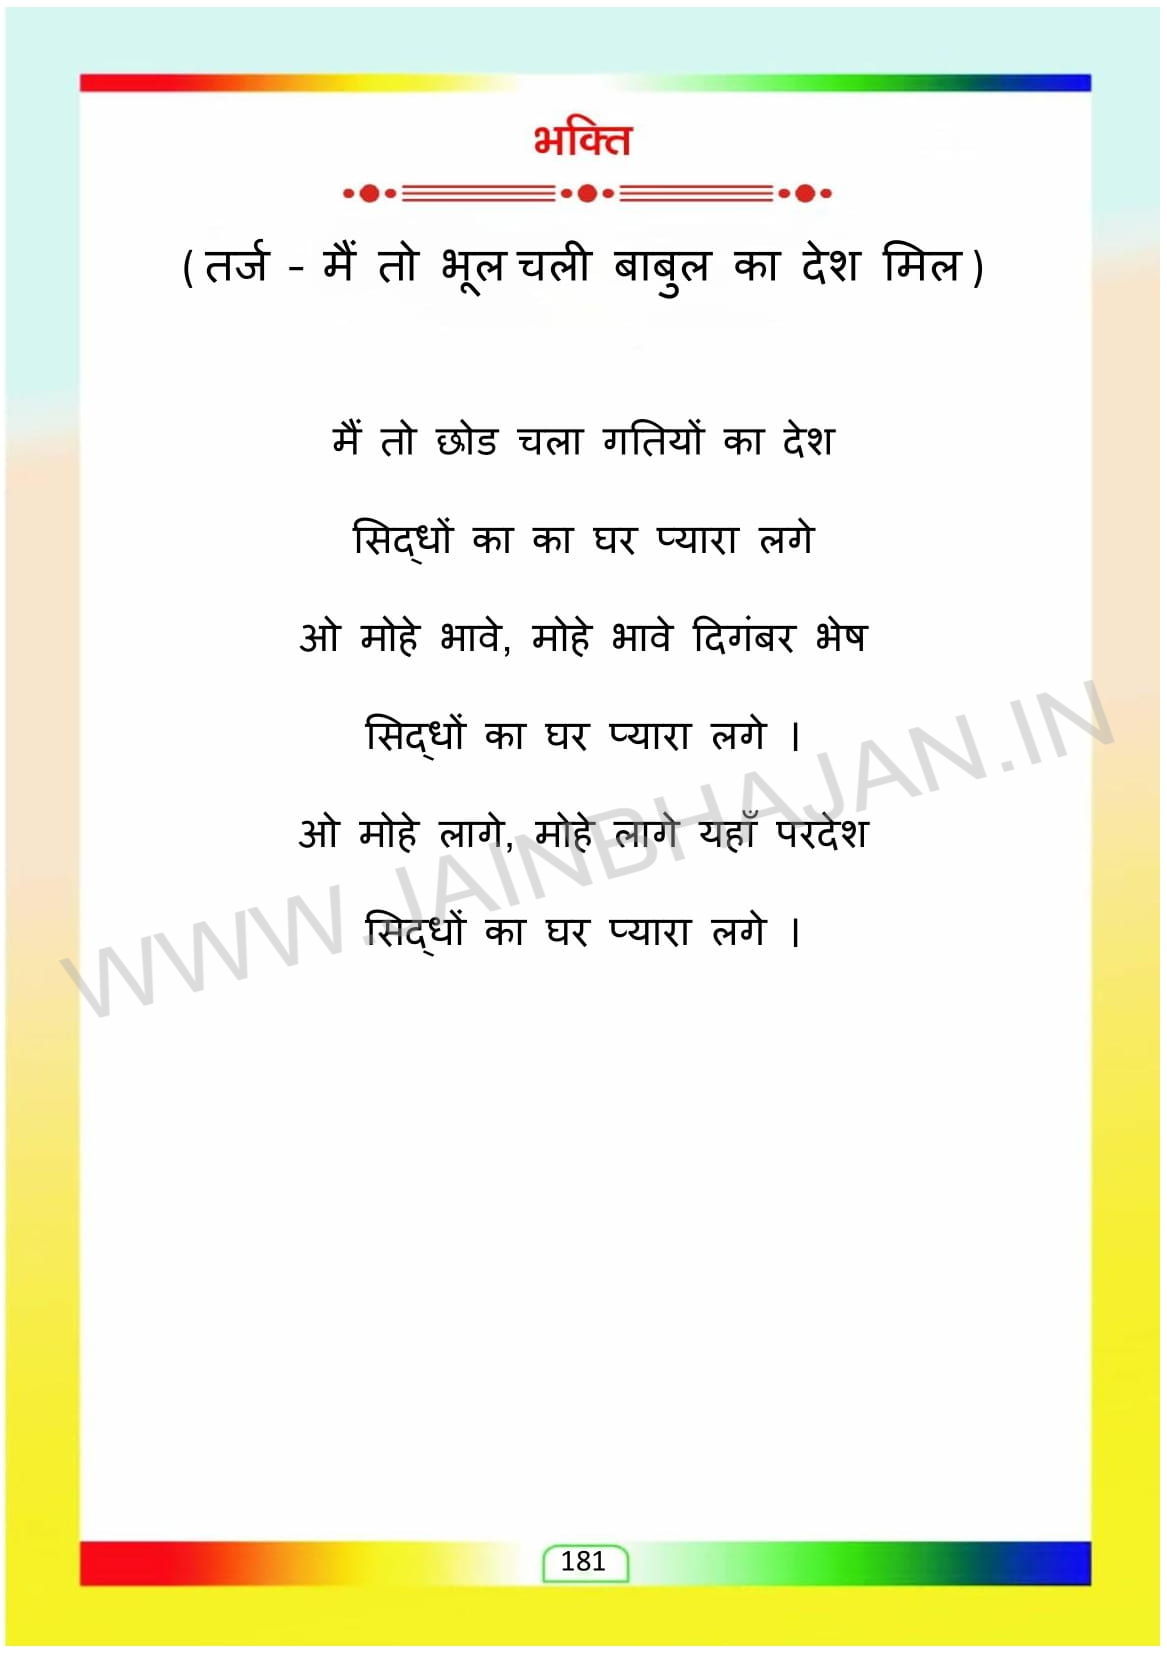 भक्ति
( तर्ज - मैं तो भूल चली बाबुल का देश मिल )
मैं तो छोड चला गतियों का देश
सिद्धों का का घर प्यारा लगे
ओ मोहे भावे, मोहे भावे दिगंबर भेष
सिद्धों का घर प्यारा लगे ।
ओ मोहे लागे, मोहे लागे यहाँ परदेश
सिद्धों का घर प्यारा लगे ।
WWW.JAINBHAJAN.IN
181